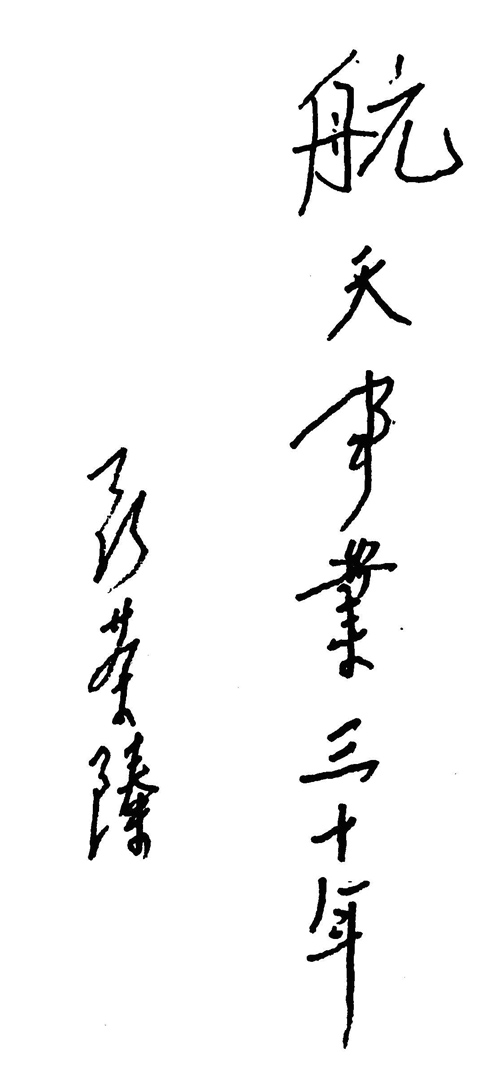 航天事业三十年
聂荣臻